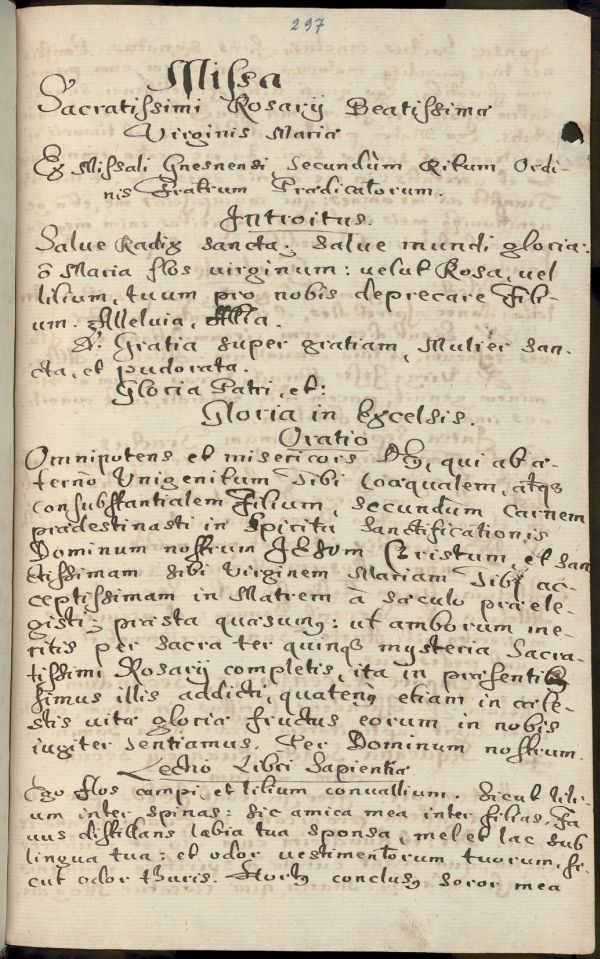 297
Missa
Sacratissimi Rosarij Beatissimæ
Virginis Mariæ
Ex Missali Gnesnensi secundùm Ritum Ordi-
nis Fratrum Prædicatorum.
Introitus.
Salue Radix sancta; salue mundi gloria:
ô Maria flos uirginum: uelut Rosa, uel
lilium, tuum pro nobis deprecare Fili-
um. Alleluia, Allia.
V. Gratia super gratiam, Mulier san-
cta, et pudorata.
Gloria Patri, et:
Gloria in Excelsis.
Oratio
Omnipotens et misericors Dꝰ, qui ab æ-
terno Unigenitum sibi coæqualem, atqꝫ
consubstantialem Filium, secundùm carnem
prædestinasti in Spiritu sanctificationis
Dominum nostrum JESum Christum, et san
ctissimam sibi Virginem Mariam sibi ac-
ceptissimam in Matrem à sæculo præele-
gisti; præsta quæsumꝰ: ut amborum me-
ritis per sacra ter quinqꝫ mysteria Sacra-
tissimi Rosarij completis, ita in præsenti
simus illis addicti, quatenꝰ etiam in cæle-
stis uitæ gloriæ fructus eorum in nobis
iugiter sentiamus. Per Dominum nostrum
Lectio Libri Sapientiæ
Ego flos campi, et lilium conuallium. Sicut lili-
um inter spinas: sic amica mea inter filias. Fa
uus distillans labia tua sponsa, mel et lac sub
lingua tua: et odor uestimentorum tuorum, si-
cut odor thuris. Hortꝰ conclusꝰ soror mea